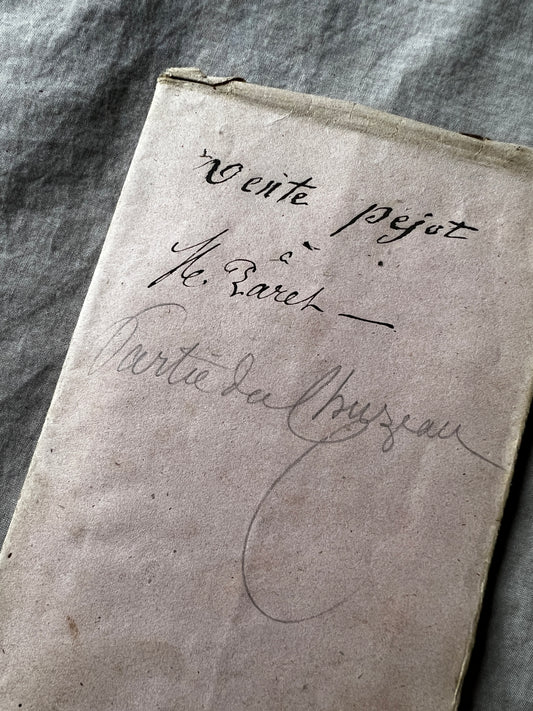 Vente pejot
à
M. Baret —
Partie du Chuzeau